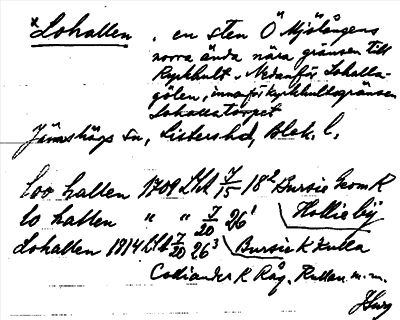 *Lohallen, en sten Ö Mjölångens
norra ända nära gränsen till
Kyrkhult. Nedanför Lohalla-
gölen, innanför kyrkhultsgränsen
Lohallatorpet
Jämshögs sn, Listers hd, Blek. l.
Loo hallen 1709 LSA 7/15 18² Bursie Geom R
Lo hallen " " 7/20 26¹ Hollie by
Lohallen 1914 LSA 7/20 26³ Bursie K Kulla
Colliander R Råg. Hallen m.m.